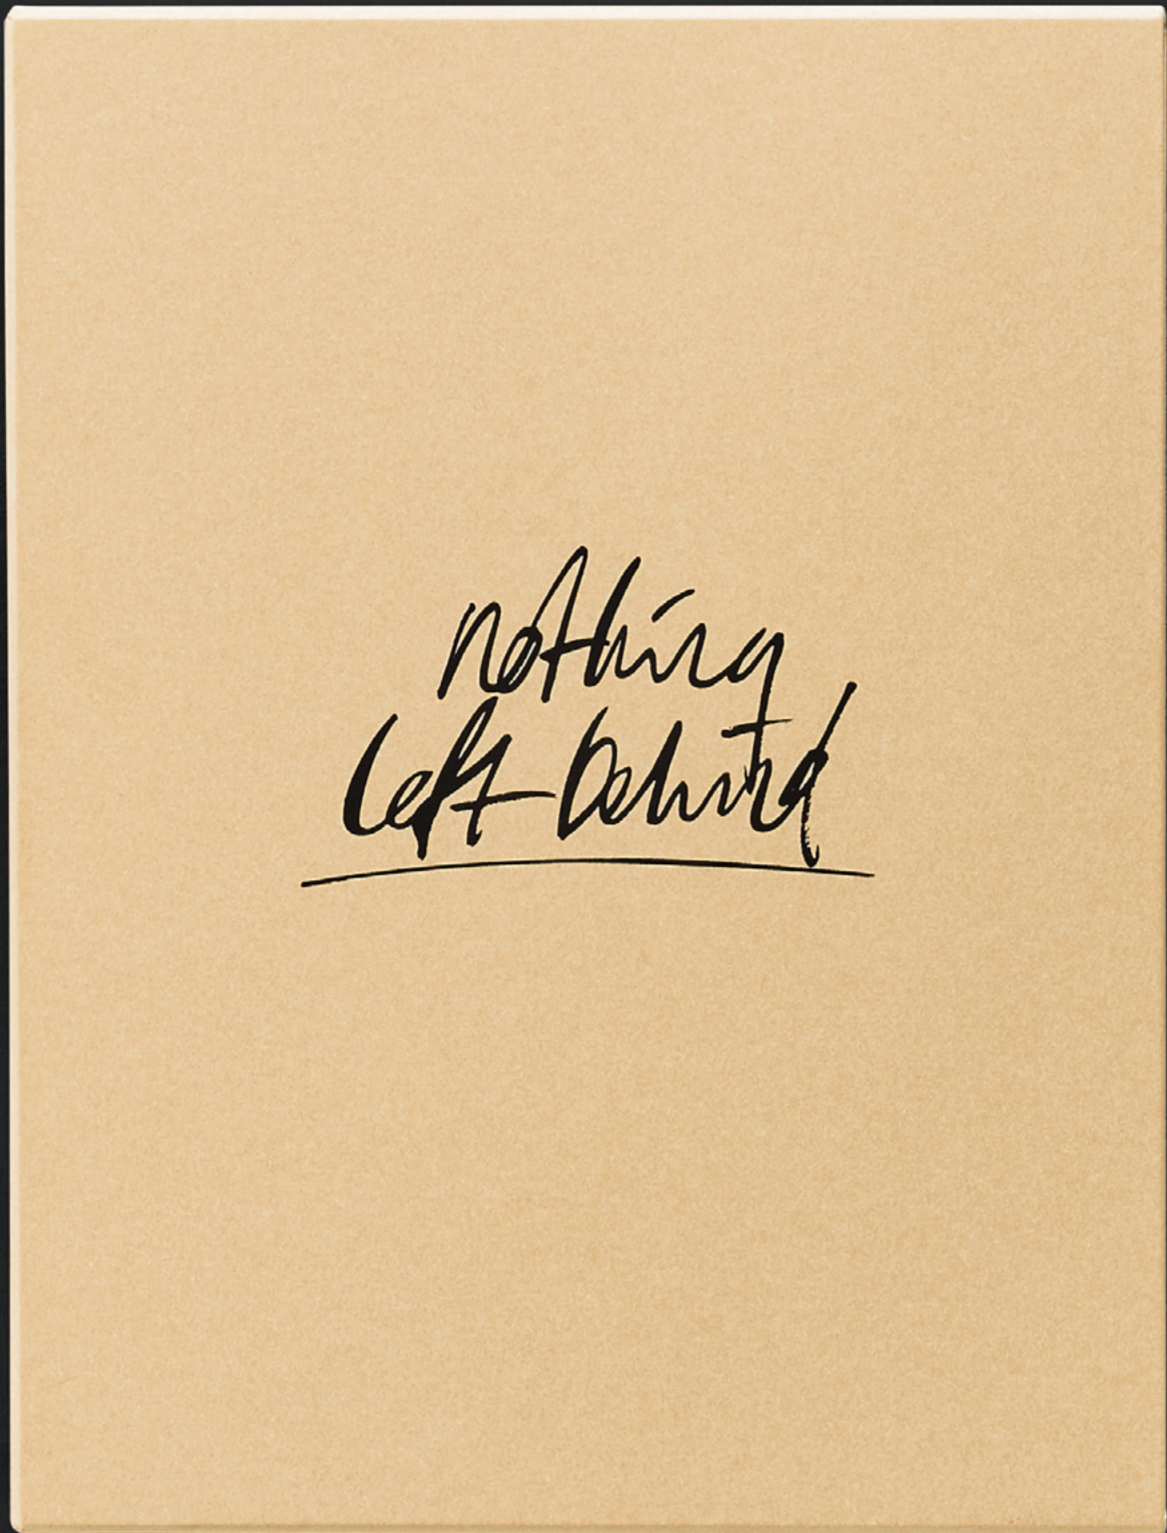 nothing
left behind